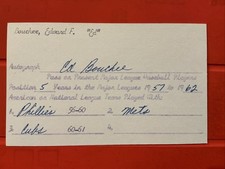 Bouchee, Edward F. "Ed"
Autograph Ed Bouchee
Past or Present Major League Baseball Players
Position 5 Years in the Major Leagues M 57 to M 62
American or National League Teams Played With:
1. Phillies 56-60 2. Mets
3. Cubs 60-61 4.